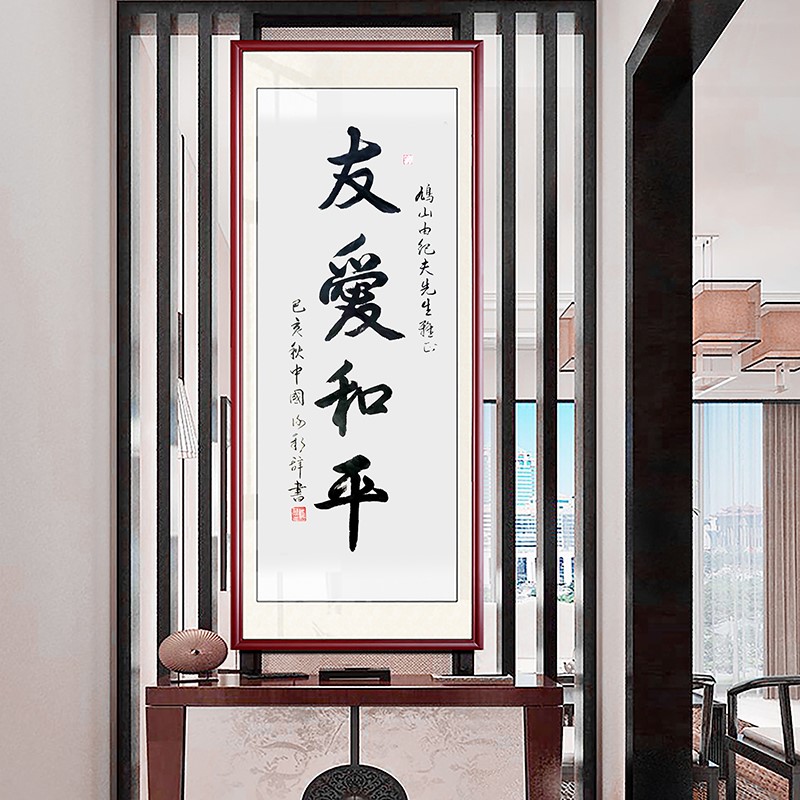 鳩山由紀夫先生雅正
友愛和平
己亥秋中國辞書